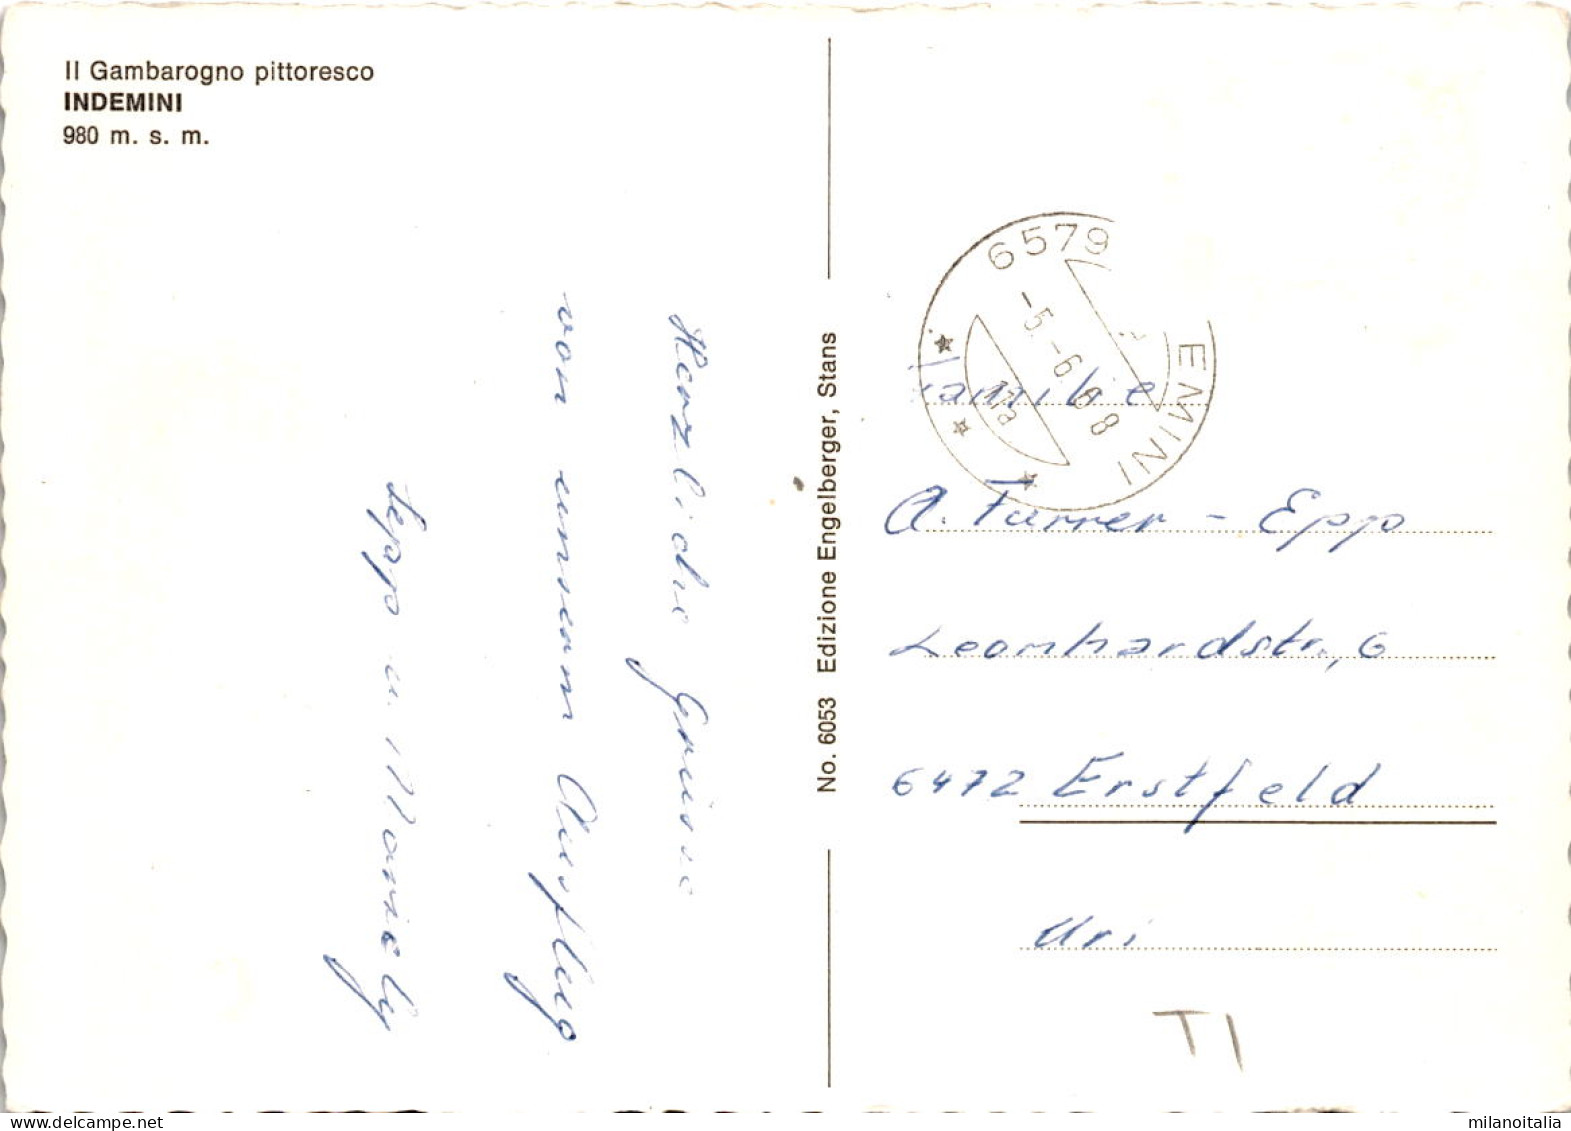 Il Gambarogno pittoresco
INDEMINI
980 m. s. m.
Herzliche Grüsse
von unserm Ausflug
Sepp u. Mariely
No. 6053 Edizione Engelberger, Stans
6579
-5.-6.68
EMINI
Familie
A. Furrer - Epp
Leonhardstr. 6
6472 Erstfeld
Uri
TI
milanoitalia